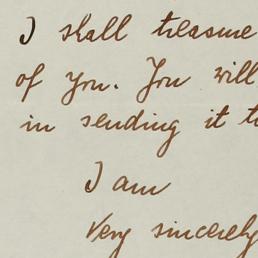 I shall treasure
of you. You will
in sending it to
I am
Very sincerely